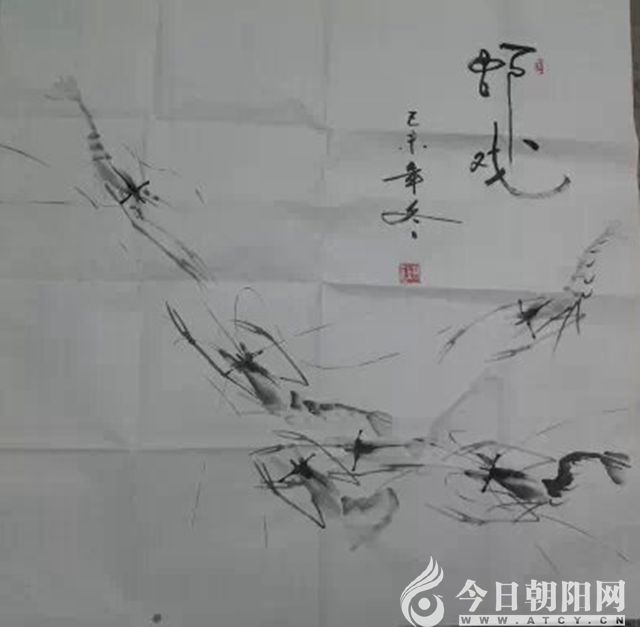 虾戏
己未年冬
今日朝阳网
WWW.ATCY.CN